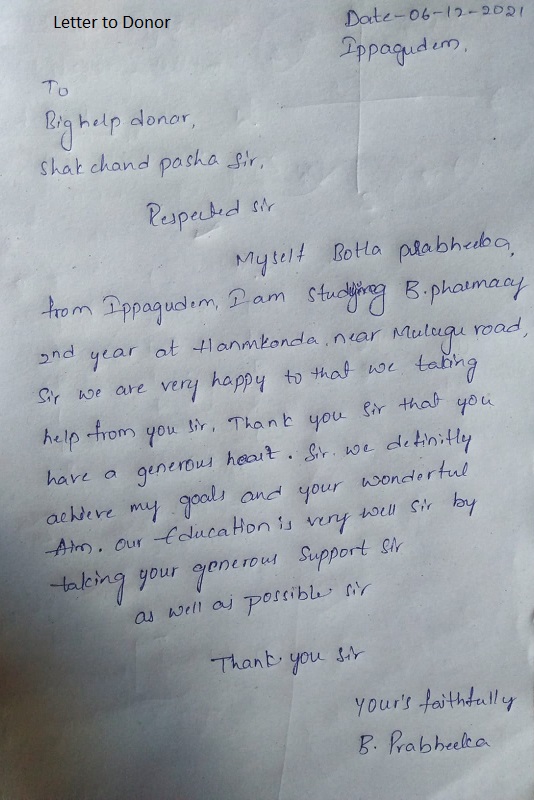 Letter to Donor
Date-06-12-2021
Ippagudem.
To
Big help donor,
Shak chand pasha Sir,
Respected sir
Myself Botla
from Ippagudem, I am studying B.pharmacy
2nd year at Hanmkonda, near Mulugu road,
Sir we are very happy to that we taking
help from you sir. Thank you Sir that you
have a generous heart. Sir. we definitly
achieve my goals and your wonderful
Aim. our Education is very well Sir by
taking your generous support Sir
as well as possible sir
Thank you Sir
Your's faithfully
B. Prabheeka